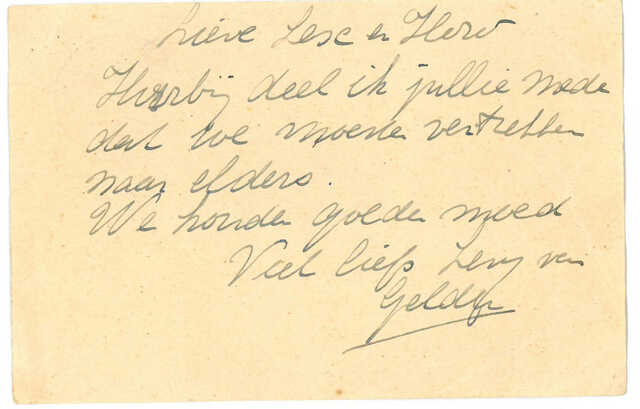 Lieve Lesc en Hero
Hierbij deel ik jullie mede
dat we moeten vertrekken
naar elders.
We houden goeden moed
Veel liefs Leny van
Gelder